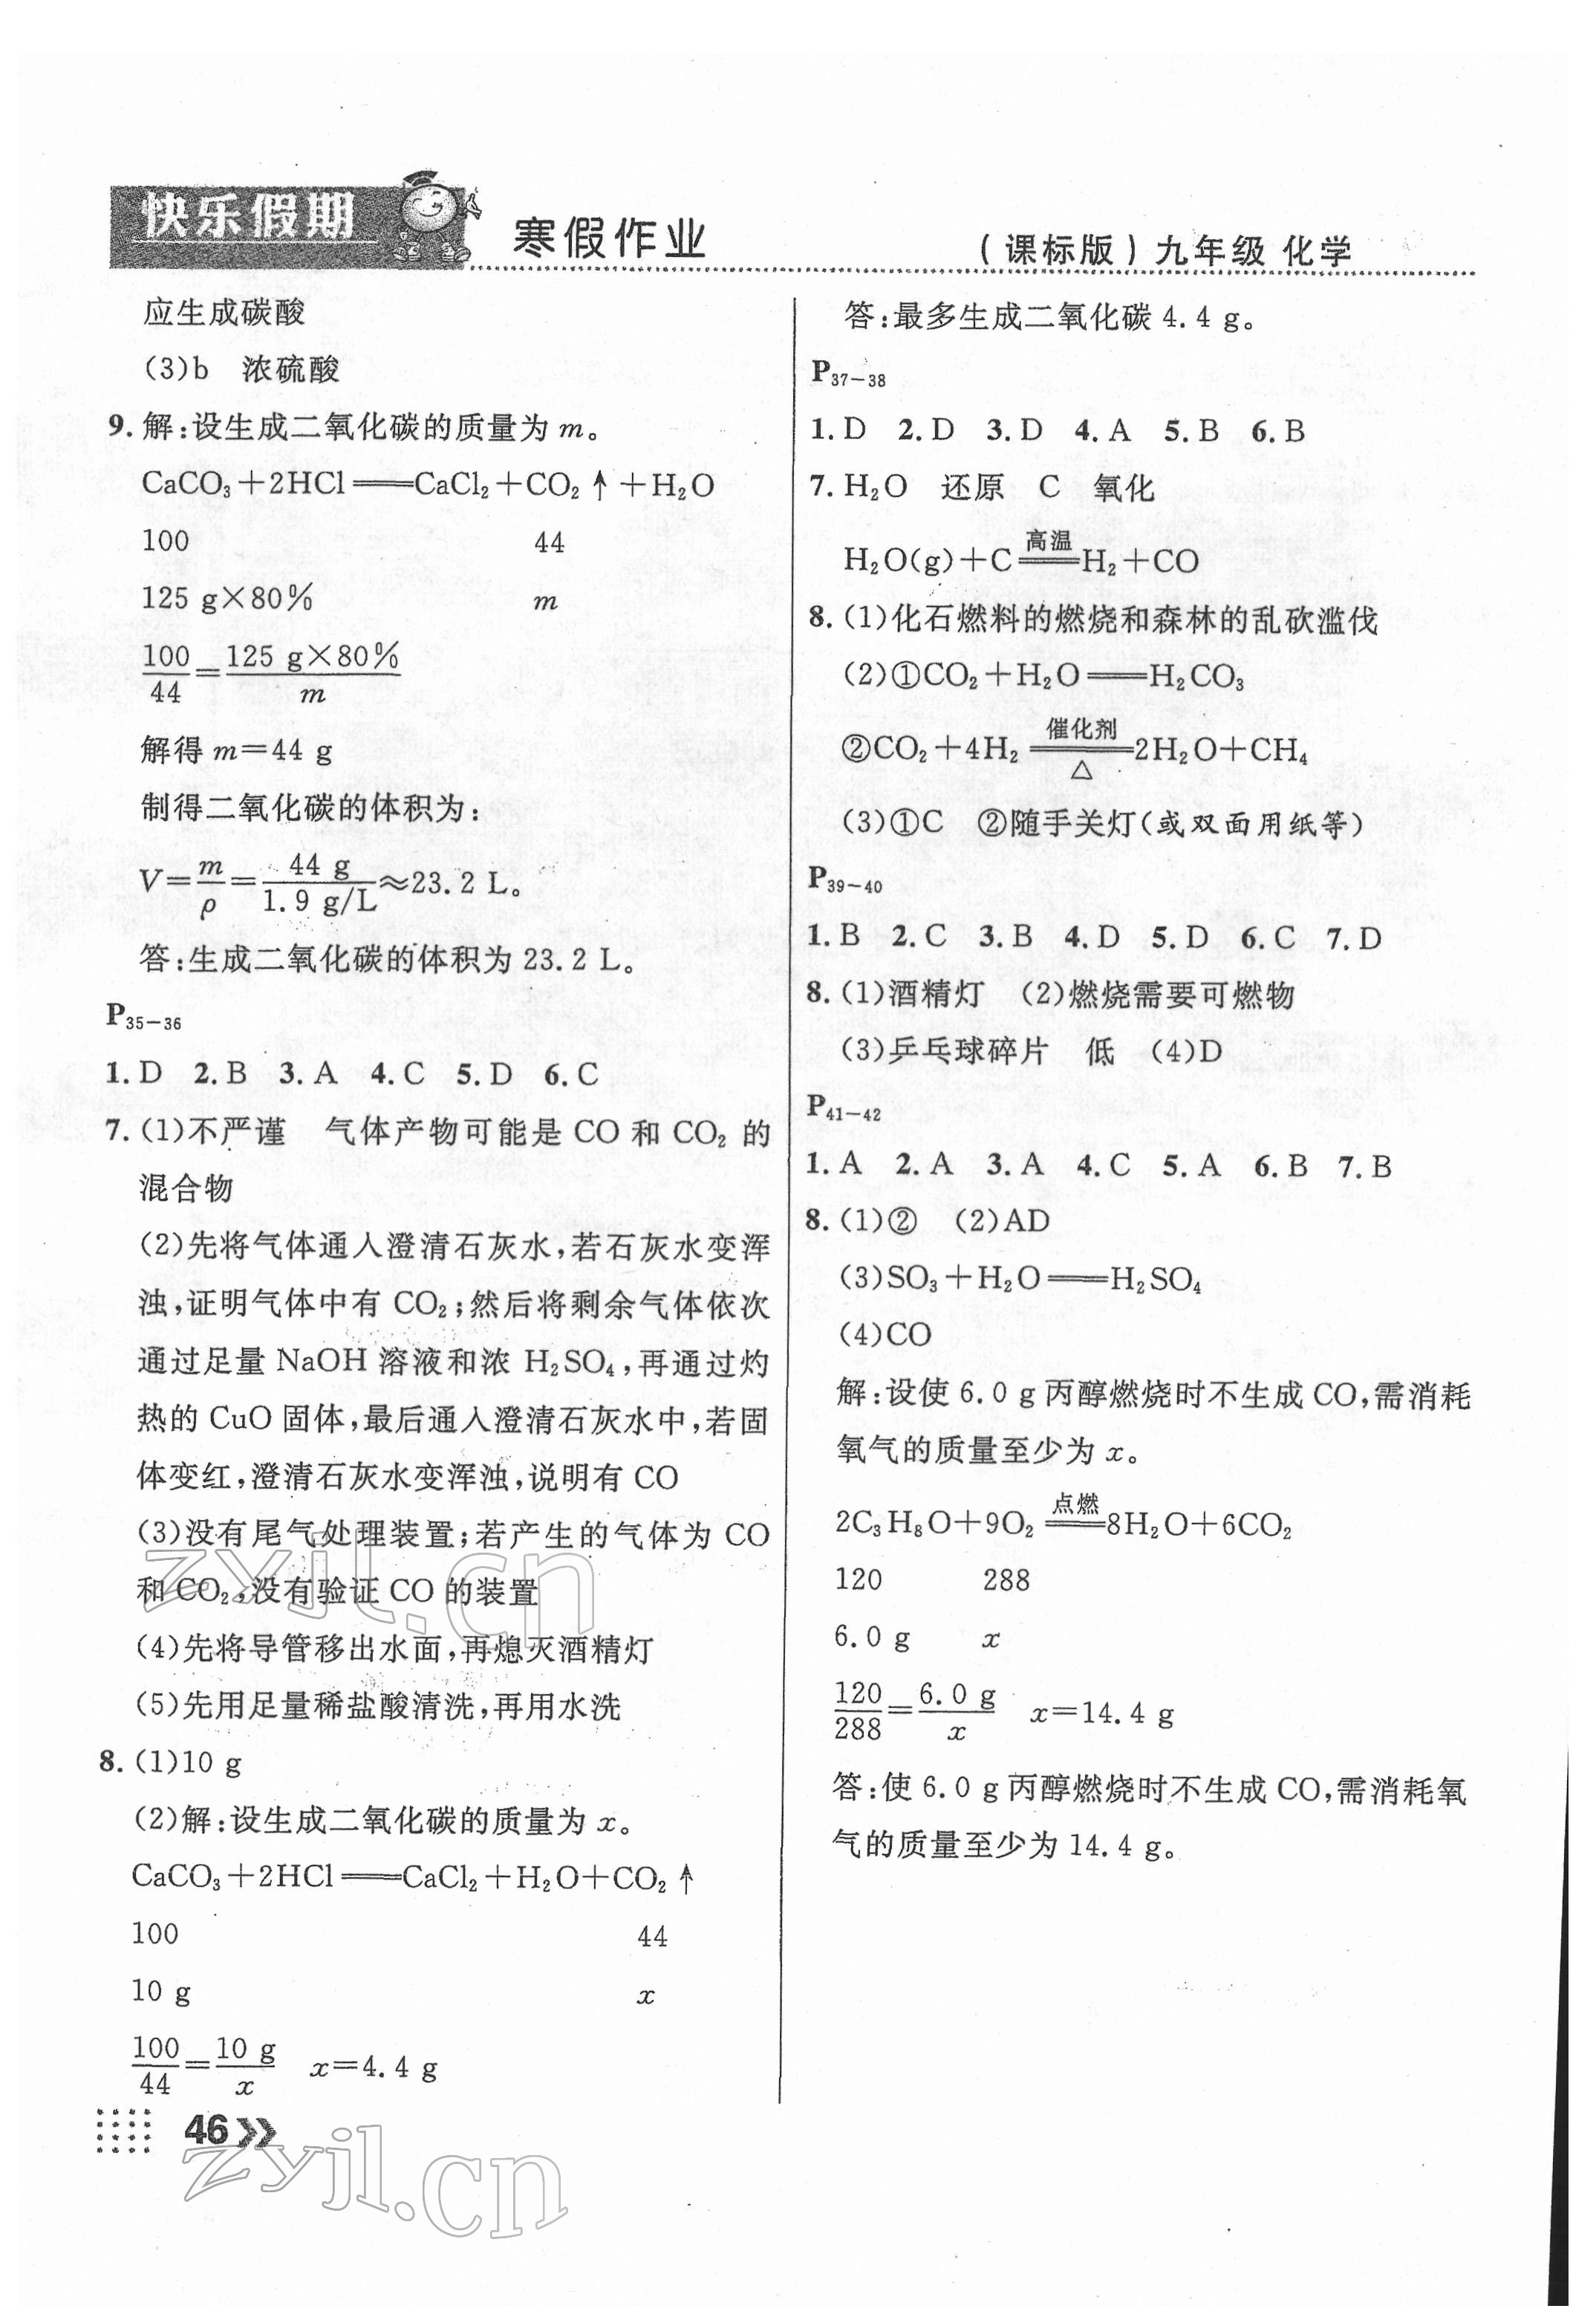 快乐假期 寒假作业 (课标版)九年级 化学
应生成碳酸
(3)b 浓硫酸
9.解:设生成二氧化碳的质量为 m。
CaCO₃+2HCl══CaCl₂+CO₂↑+H₂O
100 44
125 g×80% m
100/44=125 g×80%/m
解得 m=44 g
制得二氧化碳的体积为:
V=m/ρ=44 g/1.9 g/L≈23.2 L。
答:生成二氧化碳的体积为 23.2 L。
P₃₅₋₃₆
1.D 2.B 3.A 4.C 5.D 6.C
7.(1)不严谨 气体产物可能是 CO 和 CO₂ 的
混合物
(2)先将气体通人澄清石灰水,若石灰水变浑
浊,证明气体中有 CO₂;然后将剩余气体依次
通过足量 NaOH 溶液和浓 H₂SO₄,再通过灼
热的 CuO 固体,最后通人澄清石灰水中,若固
体变红,澄清石灰水变浑浊,说明有 CO
(3)没有尾气处理装置;若产生的气体为 CO
和 CO₂,没有验证 CO 的装置
(4)先将导管移出水面,再熄灭酒精灯
(5)先用足量稀盐酸清洗,再用水洗
8.(1)10 g
(2)解:设生成二氧化碳的质量为 x。
CaCO₃+2HCl══CaCl₂+H₂O+CO₂↑
100 44
10 g x
100/44=10 g/x x=4.4 g
46
答:最多生成二氧化碳 4.4 g。
P₃₇₋₃₈
1.D 2.D 3.D 4.A 5.B 6.B
7.H₂O 还原 C 氧化
H₂O(g)+C══高温══H₂+CO
8.(1)化石燃料的燃烧和森林的乱砍滥伐
(2)①CO₂+H₂O══H₂CO₃
②CO₂+4H₂══催化剂/△══2H₂O+CH₄
(3)①C ②随手关灯(或双面用纸等)
P₃₉₋₄₀
1.B 2.C 3.B 4.D 5.D 6.C 7.D
8.(1)酒精灯 (2)燃烧需要可燃物
(3)乒乓球碎片 低 (4)D
P₄₁₋₄₂
1.A 2.A 3.A 4.C 5.A 6.B 7.B
8.(1)② (2)AD
(3)SO₃+H₂O══H₂SO₄
(4)CO
解:设使 6.0 g 丙醇燃烧时不生成 CO,需消耗
氧气的质量至少为 x。
2C₃H₈O+9O₂══点燃══8H₂O+6CO₂
120 288
6.0 g x
120/288=6.0 g/x x=14.4 g
答:使 6.0 g 丙醇燃烧时不生成 CO,需消耗氧
气的质量至少为 14.4 g。
zyjl.cn
zyjl.cn